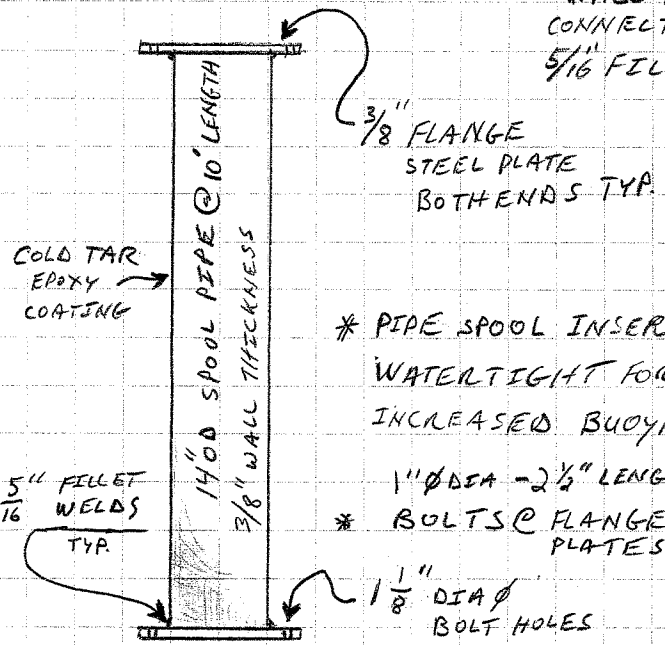 CONNECT
5/16" FIL
3/8" FLANGE
STEEL PLATE
BOTH ENDS TYP.
COLD TAR
EPOXY
COATING
14" OD SPOOL PIPE @ 10' LENGTH
3/8" WALL THICKNESS
* PIPE SPOOL INSER
WATERTIGHT FOR
INCREASED BUOY
1" Ø DIA - 2 1/2" LENG
* BOLTS @ FLANGE
PLATES
5/16" FILLET
WELDS
TYP.
1 1/8" DIA Ø
BOLT HOLES